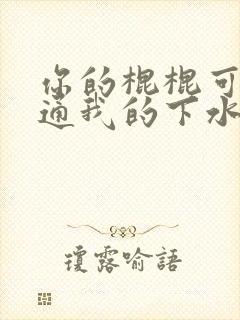 你的棍棍可
通我的下水
瓊露喻語